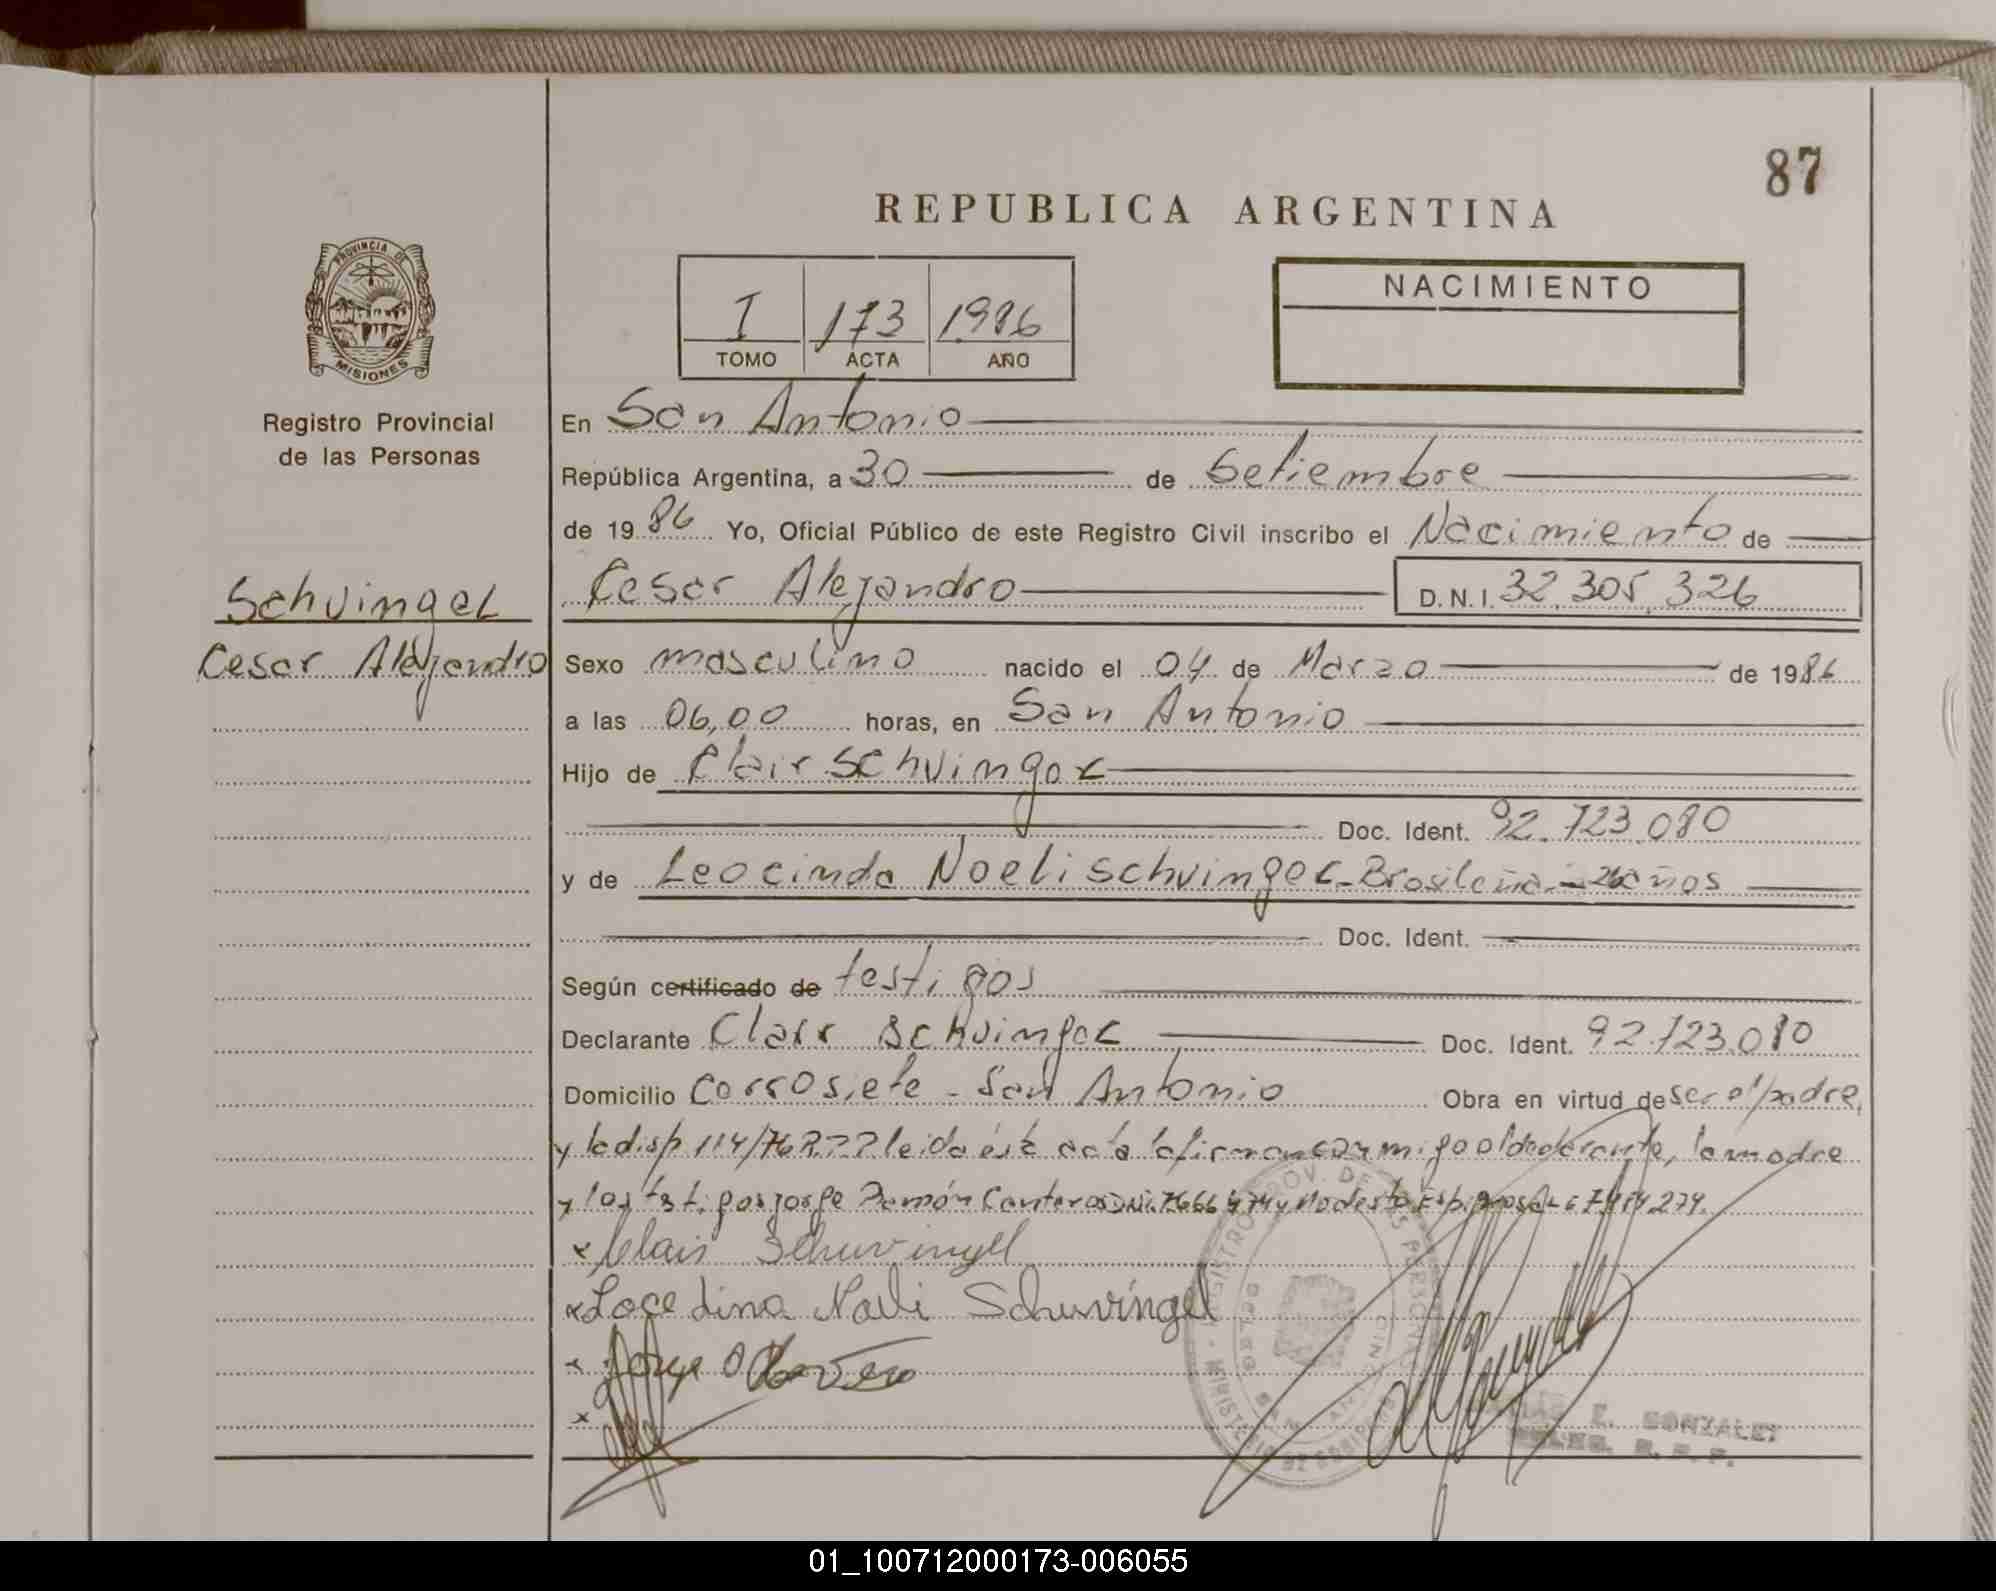 87
REPUBLICA ARGENTINA
PROVINCIA DE
MISIONES
Registro Provincial
de las Personas
I 173 1986
TOMO ACTA AÑO
NACIMIENTO
En San Antonio
República Argentina, a 30 de Setiembre
de 19 86 Yo, Oficial Público de este Registro Civil inscribo el Nacimiento de
Cesar Alejandro D.N.I. 32.305.326
Schvingel
Cesar Alejandro
Sexo masculino nacido el 04 de Marzo de 1986
a las 06,00 horas, en San Antonio
Hijo de Clair Schvingel
Doc. Ident. 92.723.080
y de Leocinda Noeli schvingel - Brasileña - 26 años
Doc. Ident.
Según certificado de testigos
Declarante Clair Schvingel Doc. Ident. 92.723.080
Domicilio Corrosiete - San Antonio Obra en virtud de ser el padre,
y la disp 114/76 leida ésta acta la firman conmigo el declarante, la madre
y los testigos Jorge Ramón Canteros DNI. 7666474 y Modesto Espinosa
x Clair Schuvingel
x Locedina Noeli Schuvingel
x Jorge
x
E. GONZALEZ
01_100712000173-006055